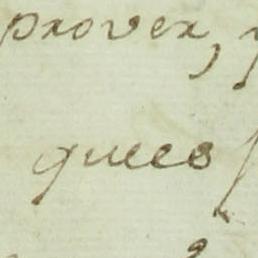 prover,
quees